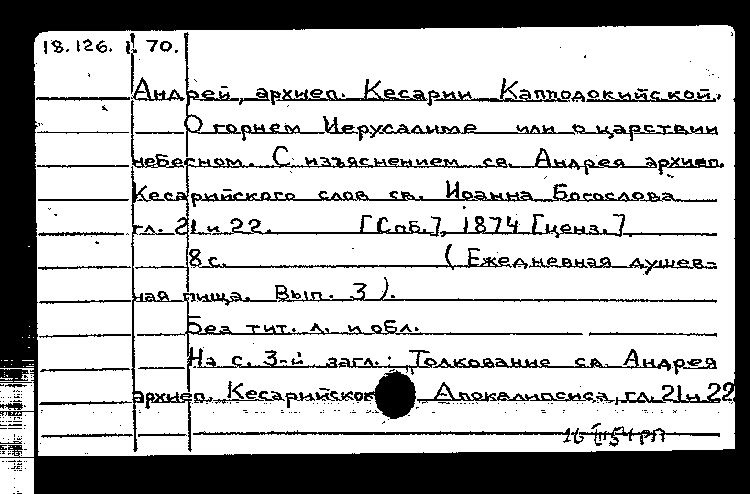 18.126. 1. 70.
Андрей, архиеп. Кесарии Капподокийской.
О горнем Иерусалиме или о царствии
небесном. С изъяснением св. Андрея архиеп.
Кесарийского слов св. Иоанна Богослова
гл. 21 и 22. [Спб.], 1874 [ценз.].
8 с. (Ежедневная душев-
ная пища. Вып. 3).
Без тит. л. и обл.
На с. 3-й загл.: Толкование св. Андрея
архиеп. Кесарийског Апокалипсиса, гл. 21 и 22